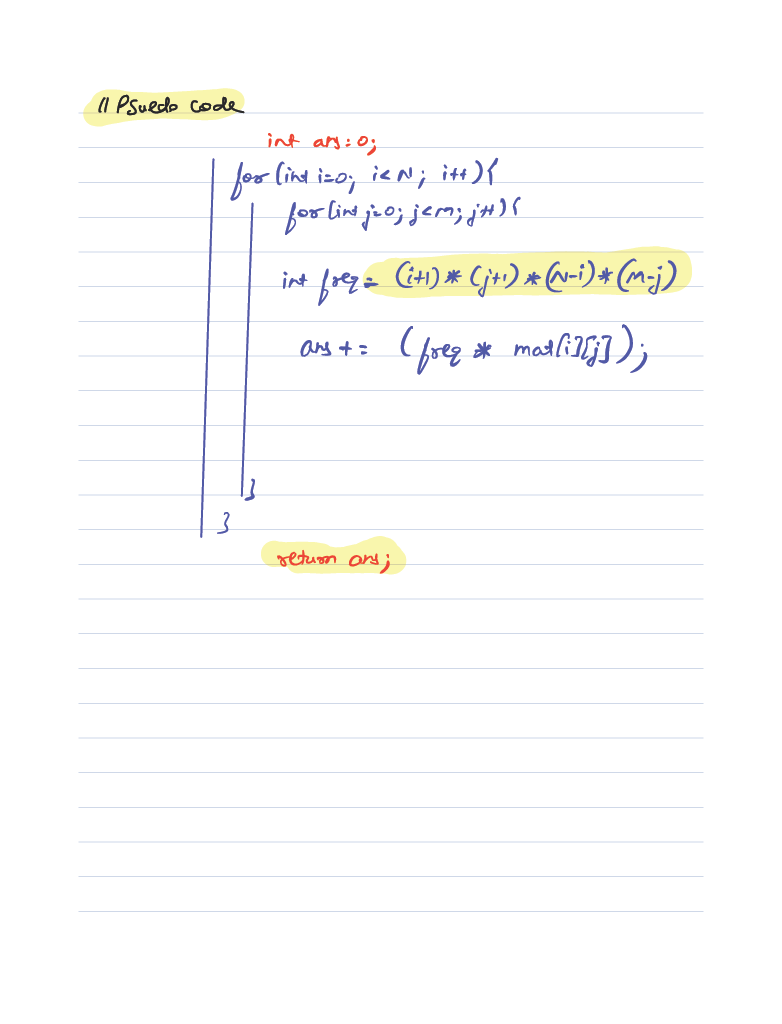 // Psuedo code
int ans = 0;
for (int i=0; i<N; i++) {
for (int j=0; j<M; j++) {
int freq = (i+1) * (j+1) * (N-i) * (M-j)
ans += (freq * mat[i][j]);
}
}
return ans;